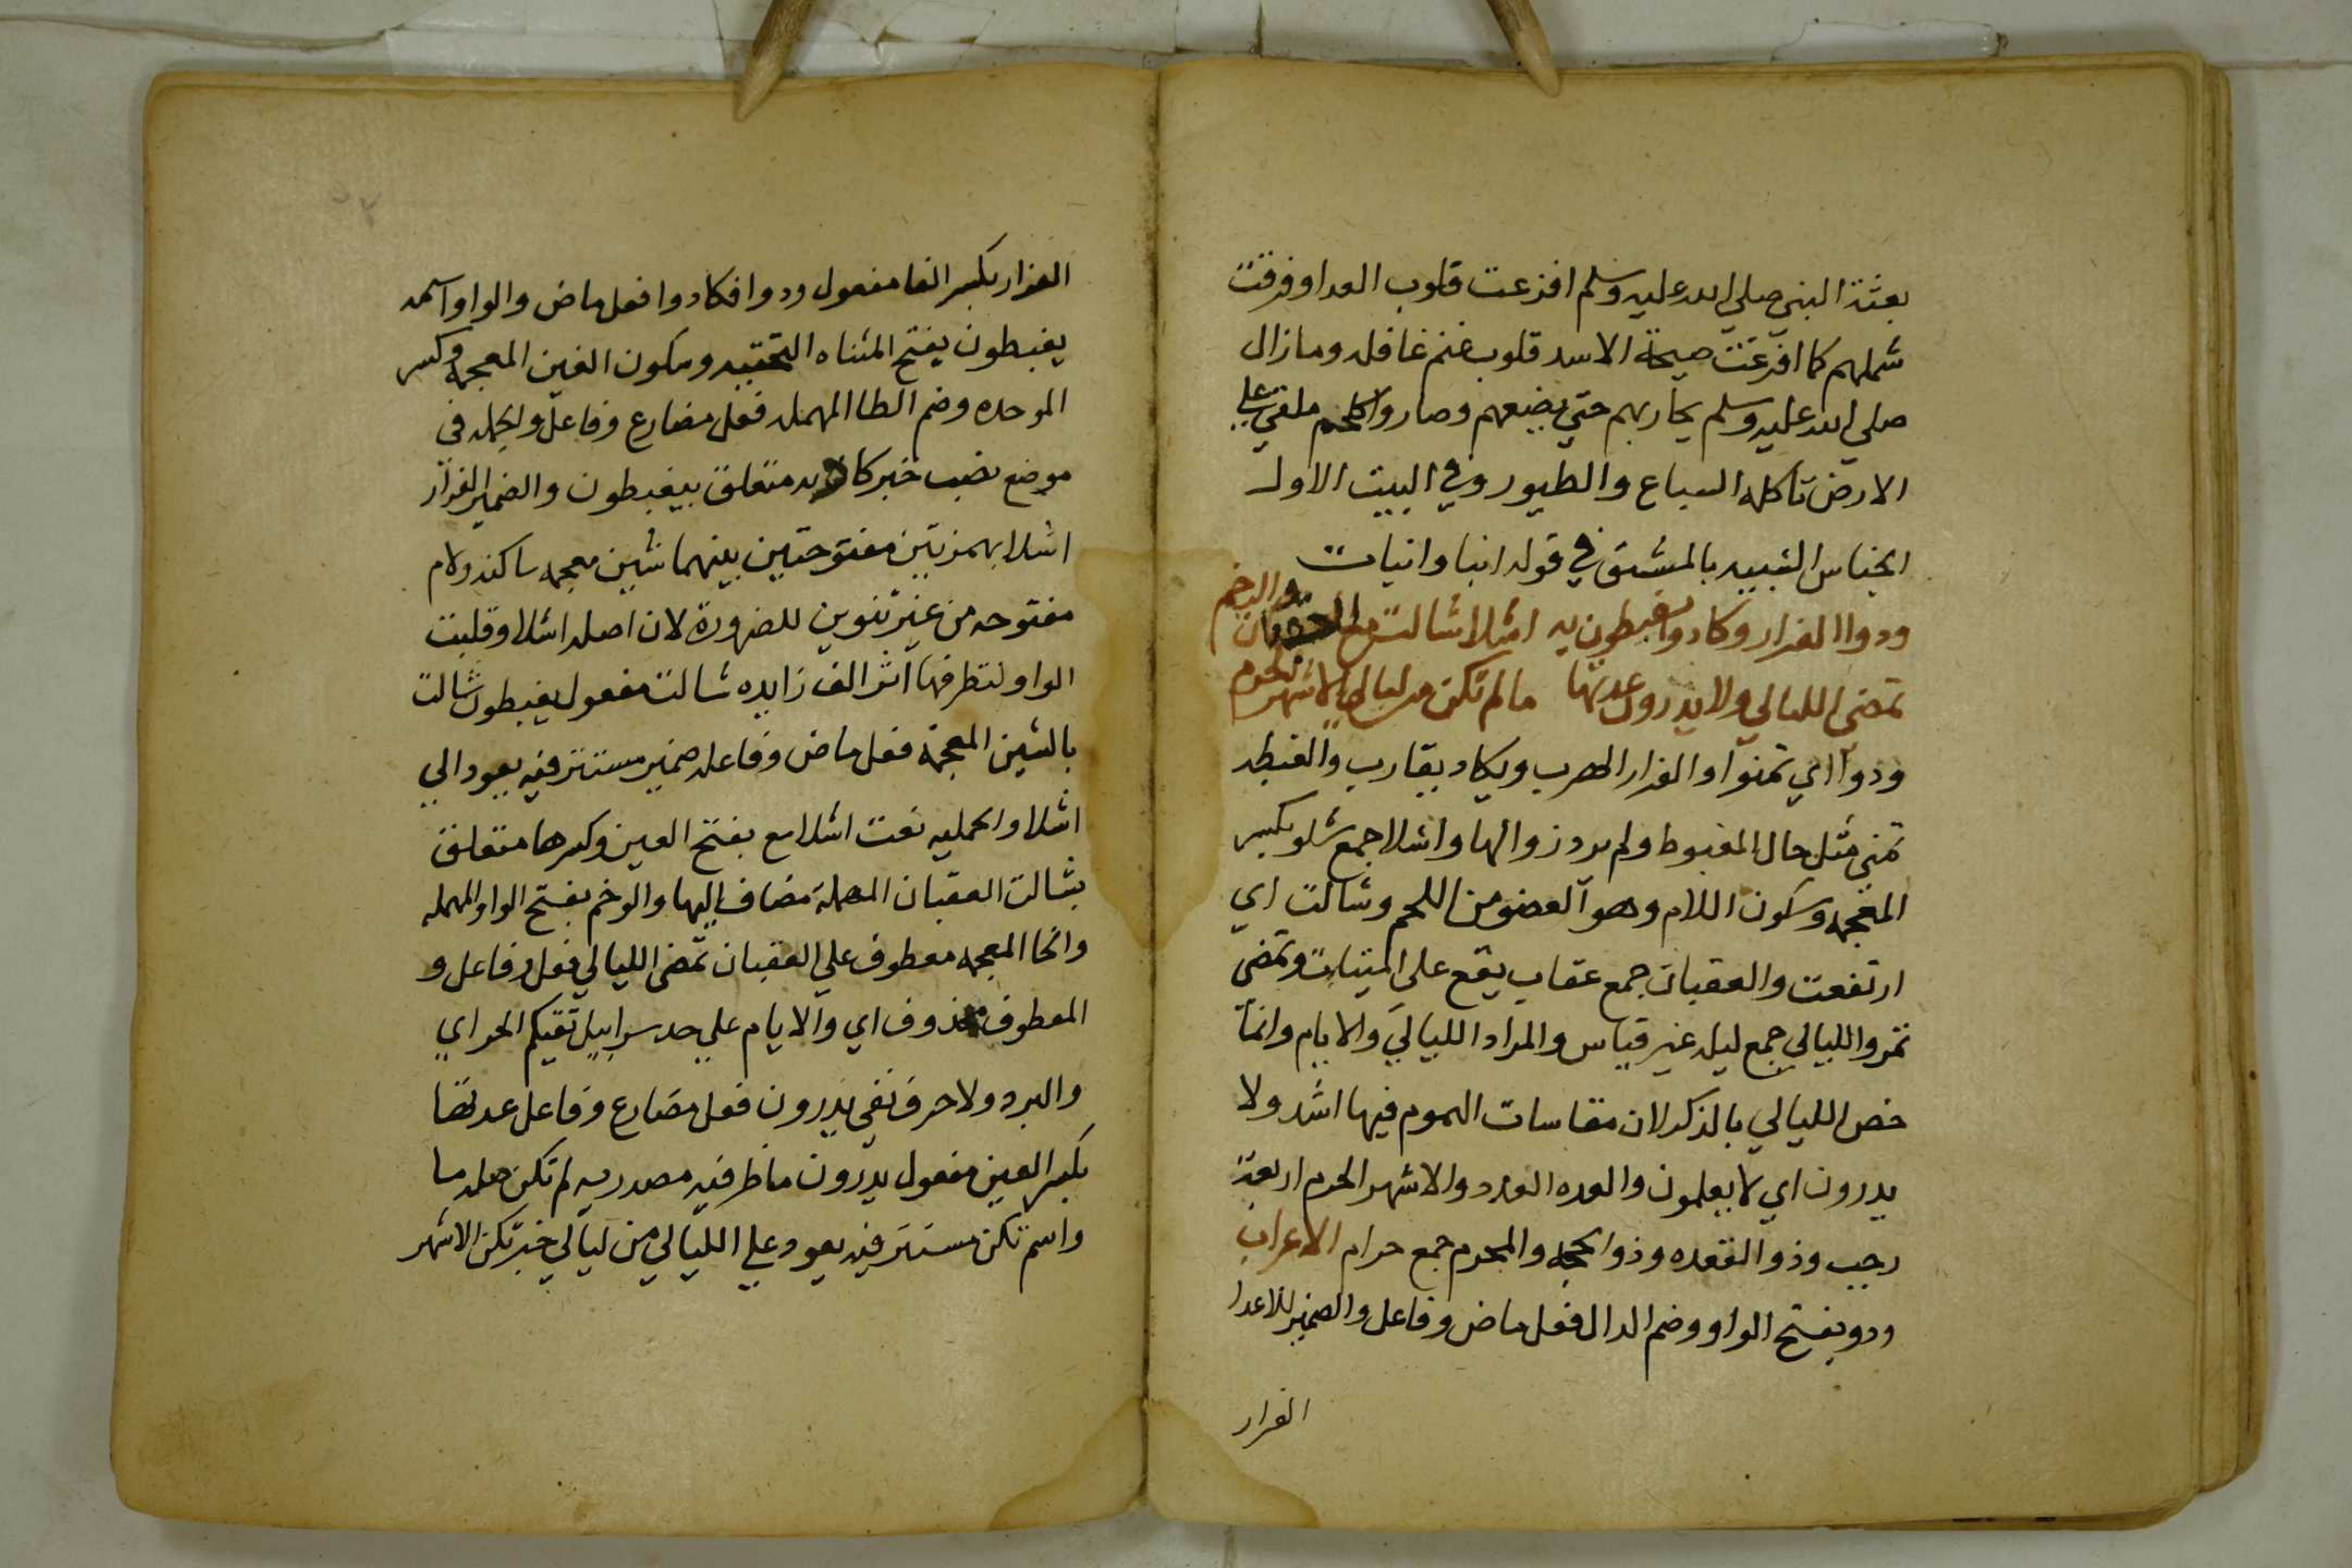 بعثة النبي صلي الله عليه وسلم افزعت قلوب العدا وفرقت
شملهم كما افزعت صيحة الاسد قلوب غنم غافله ومازال
صلي الله عليه وسلم يحاربهم حتي بضعهم وصاروا كلحم ملقي علي
الارض تاكله السباع والطيور وفي البيت الاول
الجناس الشبيه بالمشتق في قوله انبا وانبات
ودوا الفرار وكادوا يغبطون به اشلا شالت مع العقبان والرخم
تمضي الليالي ولا يدرون عدتها ما لم تكن من ليالي الاشهر الحرم
ودوا اي تمنوا والفرار الهرب ويكاد يقارب والغبطه
تمني مثل حال المغبوط ولم يرد زوالها واشلا جمع شلو بكسر
المعجمه وسكون اللام وهو العضو من اللحم وشالت اي
ارتفعت والعقبان جمع عقاب يقع علي وتمضي
تمر والليالي جمع ليله غير قياس والمراد الليالي والايام وانما
خص الليالي بالذكر لان مقاسات الهموم فيها اشد ولا
يدرون اي لا يعلمون والعده العدد والاشهر الحرم اربعة
رجب وذو القعده وذو الحجه والمحرم جمع حرام الاعراب
ودو بفتح الواو وضم الدال فعل ماض وفاعل والضمير للاعدا
الفرار
الفرار بكسر الفا مفعول ودوا فكادوا فعل ماض والواو اسمه
يغبطون بفتح المثناه التحتيه وسكون الغين المعجمه وكسر
الموحده وضم الطا المهمله فعل مضارع وفاعل والجمله في
موضع نصب خبر كاد به متعلق بيغبطون والضمير للفرار
اشلا بهمزتين مفتوحتين بينهما شين معجمه ساكنه ولام
مفتوحه من غير تنوين للضرورة لان اصله اشلاو قلبت
الواو لتطرفها اثر الف زايده شالت مفعول يغبطون شالت
بالشين المعجمة فعل ماض وفاعله ضمير مستتر فيه يعود الي
اشلا والجمليه نعت اشلا مع بفتح العين وكسرها متعلق
بشالت العقبان المهملة مضاف اليها والرخم بفتح الواو المهمله
والخا المعجمه معطوف علي العقبان تمضي الليالي فعل وفاعل و
المعطوف محذوف اي والايام علي حد سرابيل تقيكم الحر اي
والبرد ولا حرف نفي يدرون فعل مضارع وفاعل عدتها
بكسر العين مفعول يدرون ما ظرفيه مصدريه لم تكن صله ما
واسم تكن مستتر فيه يعود علي الليالي من ليالي خبر تكن الاشهر